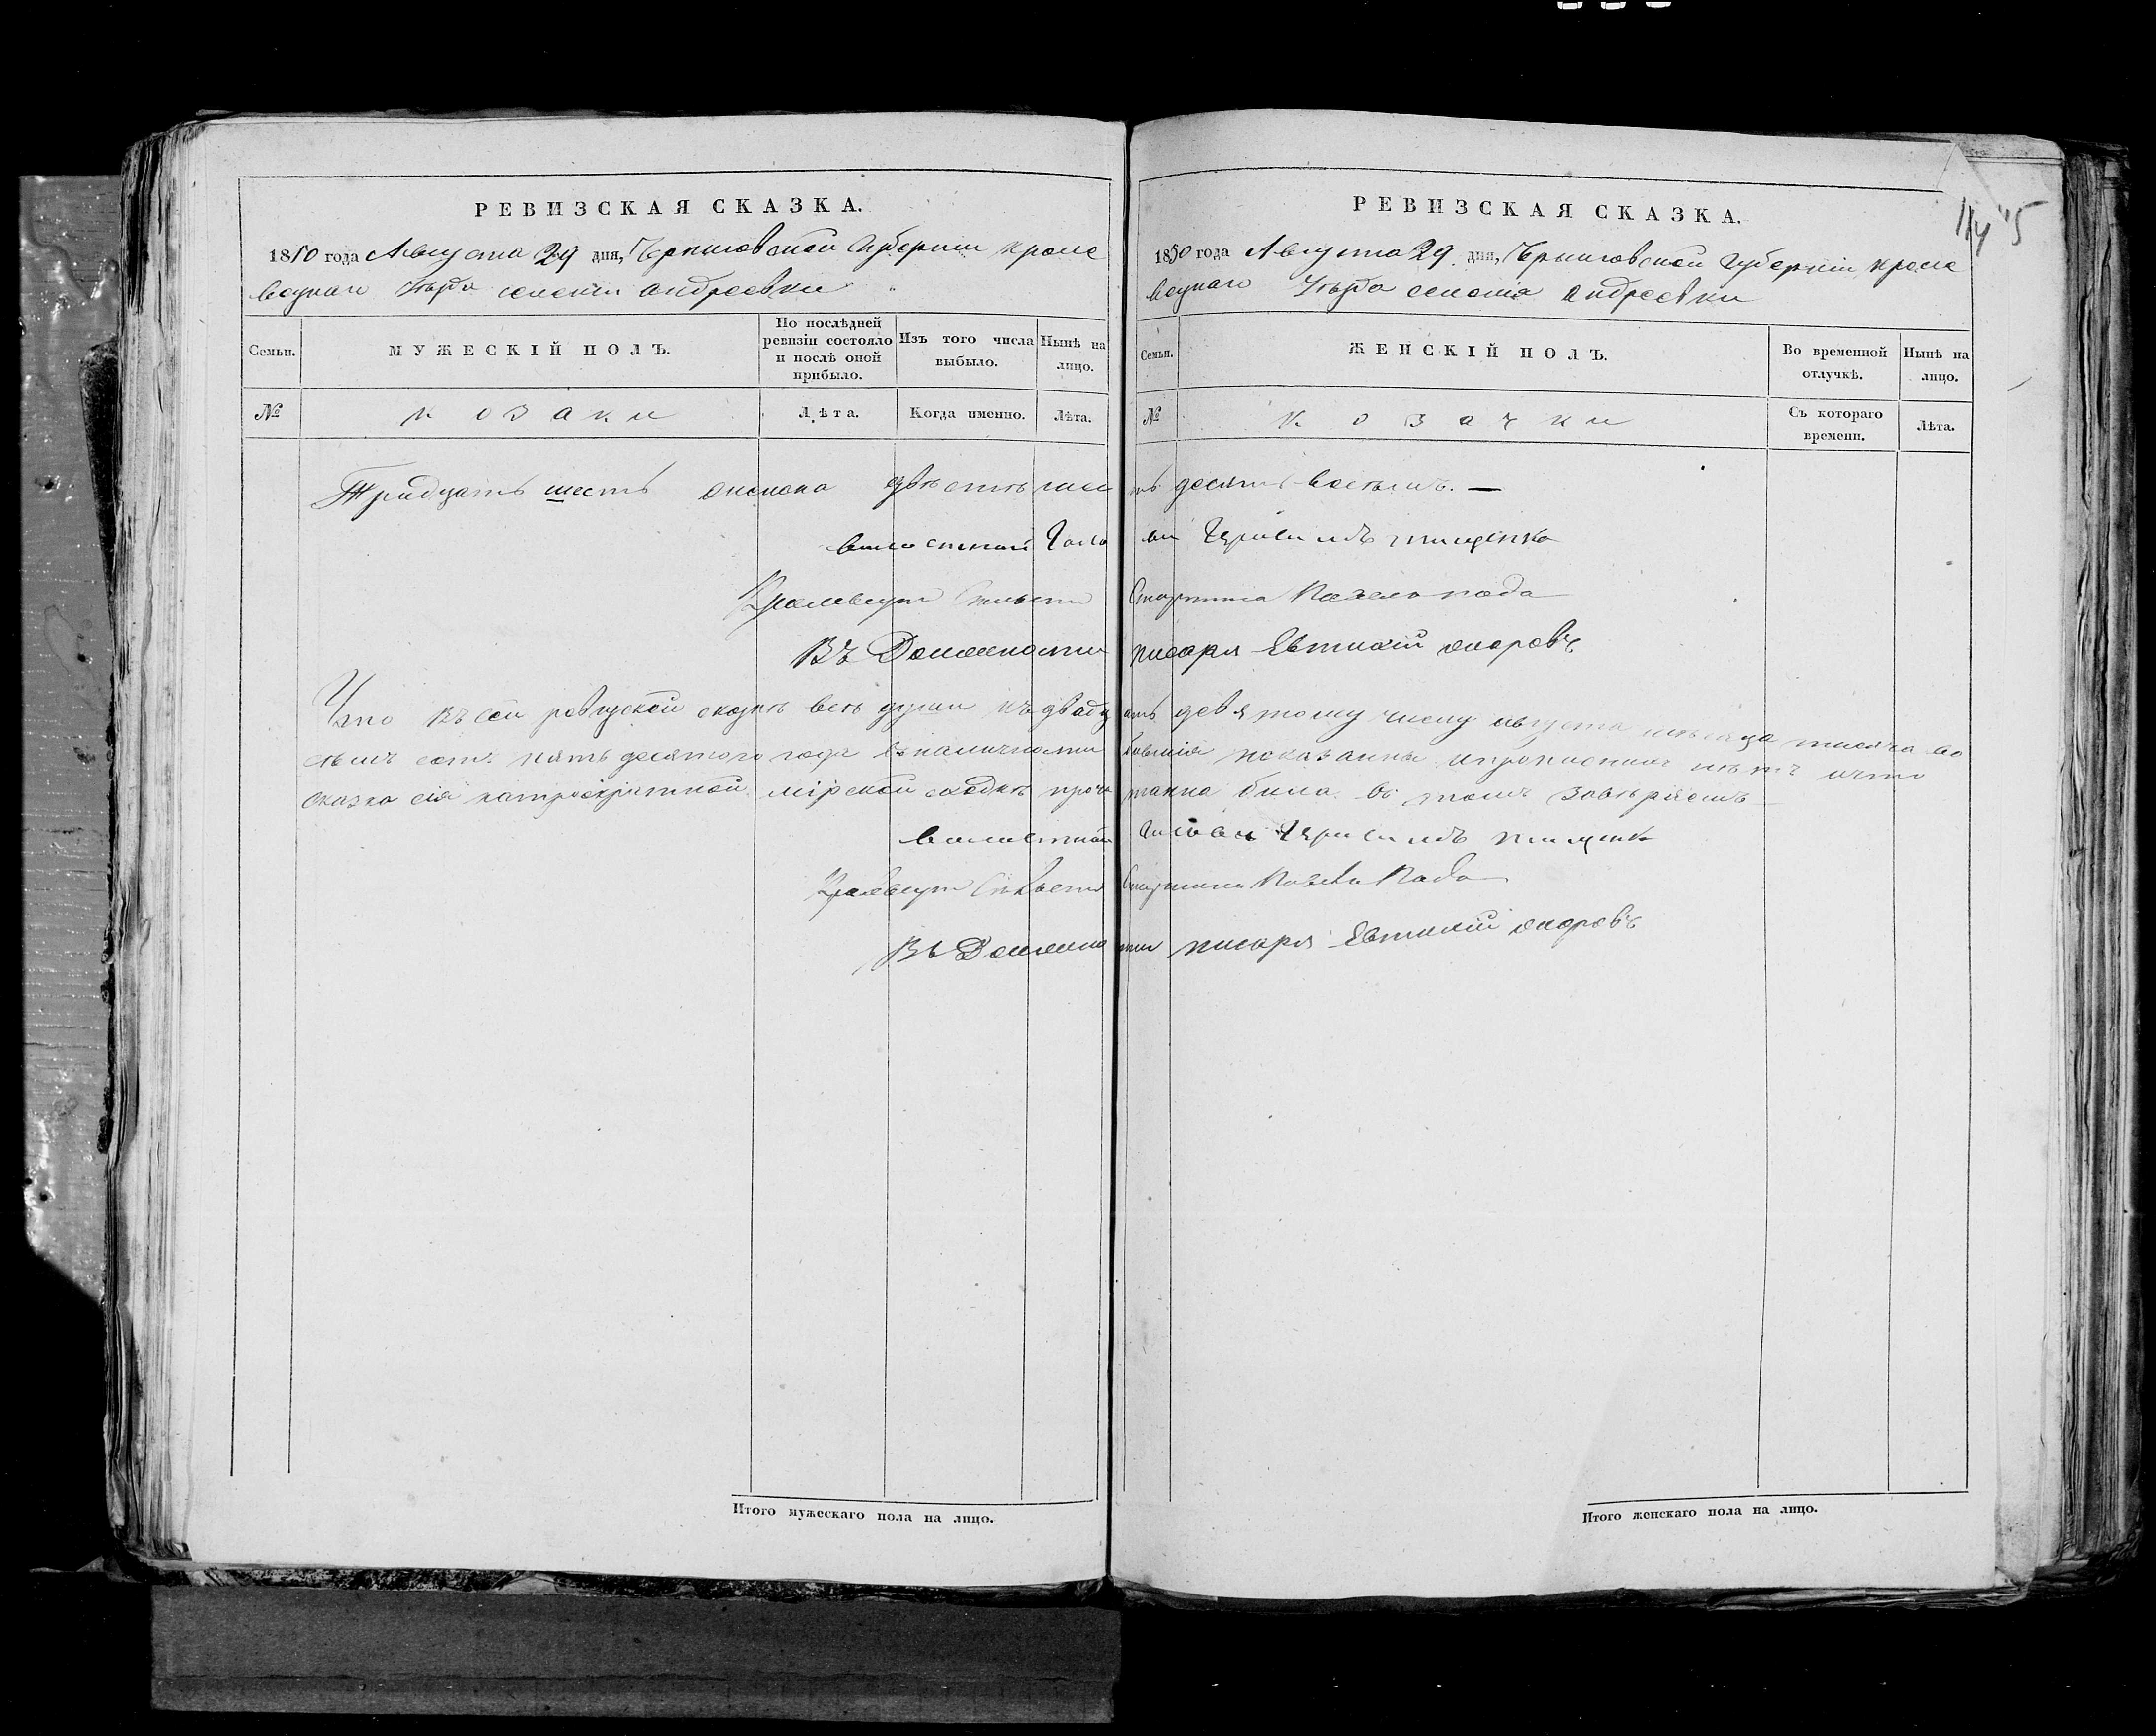 РЕВИЗСКАЯ СКАЗКА.
1850 года Августа 29 дня, Черниговской Губернии Кроле
вецкаго Уѣзда селения Андреевки
Семьи.
МУЖЕСКІЙ ПОЛЪ.
По послѣдней ревизіи состояло и послѣ оной прибыло.
Изъ того числа выбыло.
Нынѣ на лицо.
№
козаки
Лѣта.
Когда именно.
Лѣта.
РЕВИЗСКАЯ СКАЗКА.
1850 года Августа 29 дня, Черниговской Губерніи Кроле
вецкаго Уѣзда селенія Андреевки
Семьи.
ЖЕНСКІЙ ПОЛЪ.
Во временной отлучкѣ.
Нынѣ на лицо.
№
козачки
Съ котораго времени.
Лѣта.
Тридцать шесть женска двѣсти шес ть десять восемь. —
волостной Голо ва
Старшина
Въ Должности писаря Евтихій
Что въ сей ревизской сказкѣ всѣ души къ двадц ать девятому числу августа мѣсяца тисяча во
семь сотъ пять десятого года в наличности бывшія показанны и прописныхъ нѣтъ и что
сказка сія мірской сходкѣ проч танна была в томъ завѣряемъ
волостной Голова
Старшина
Въ Должно сти писаря Евтихій
Итого мужескаго пола на лицо.
Итого женскаго пола на лицо.